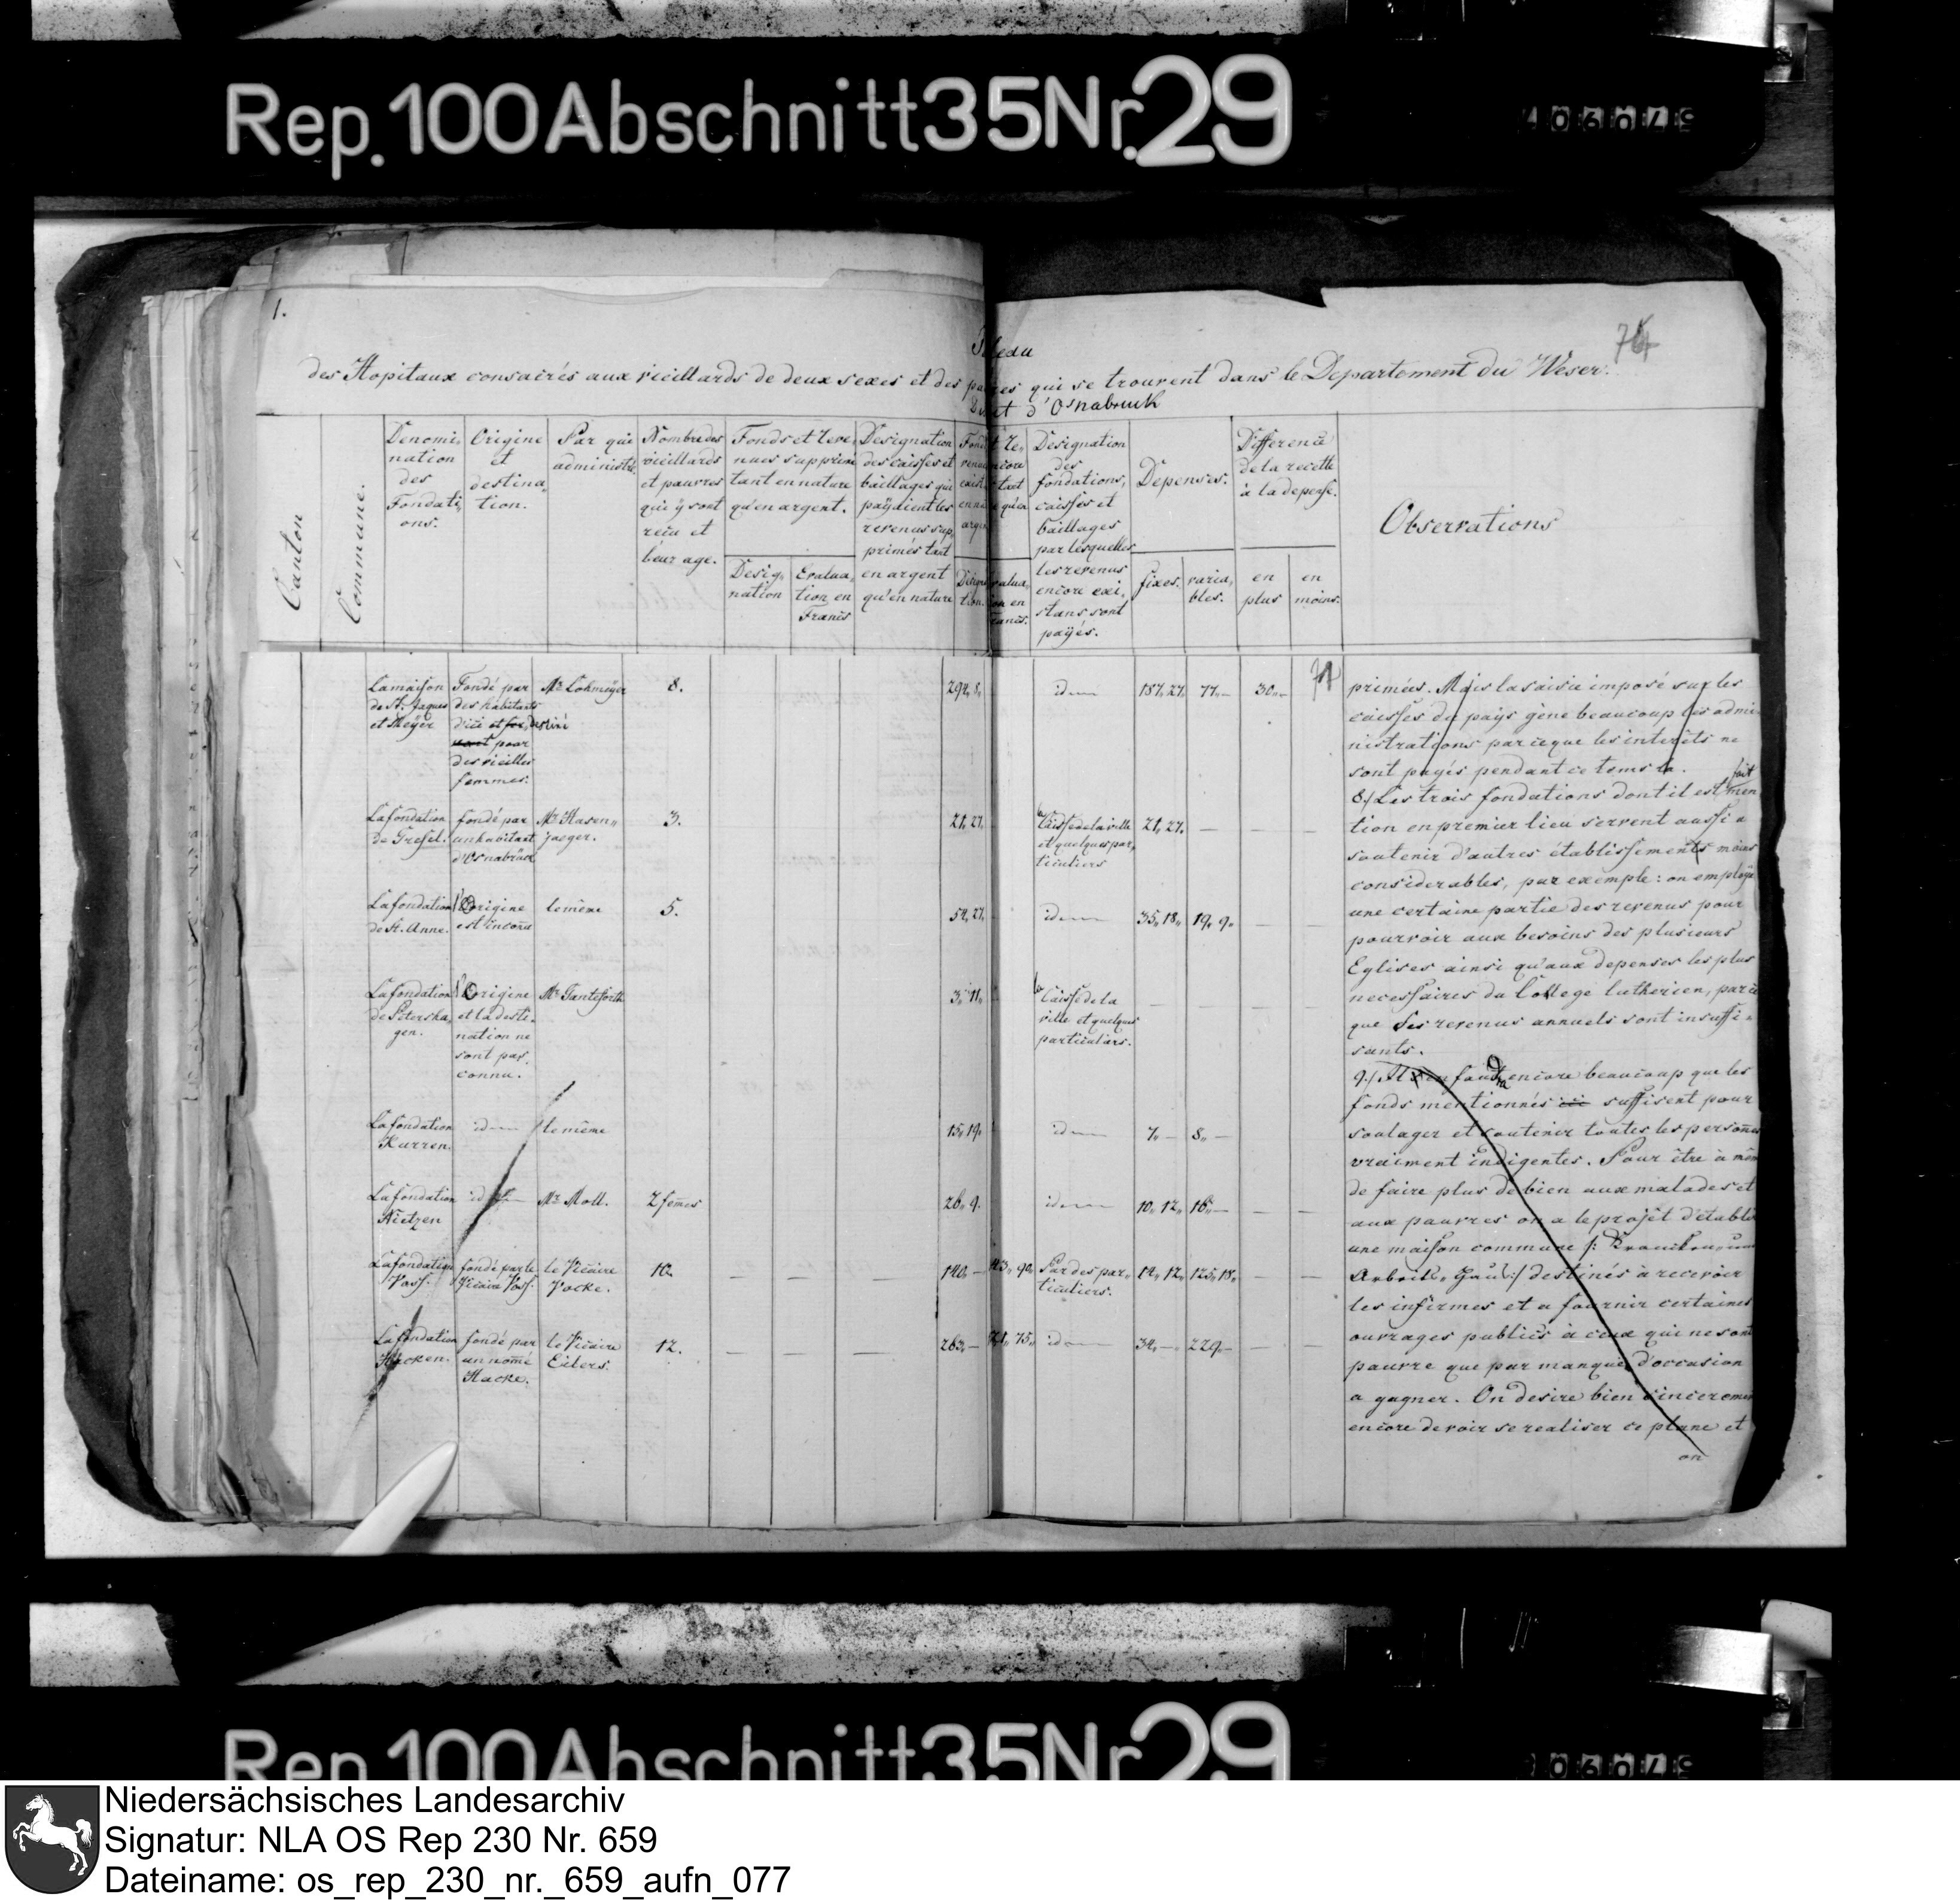 Rep. 100 Abschnitt 35 Nr. 29
1.
des Hopitaux consacrés aux vieillards de deux sexes et des qui se trouvent dans le Departement du Weser.
d'Osnabruck
Canton
Commune.
Denomi,
nation
des
Fondati,
ons.
Origine
et
destina,
tion.
Par qui
administré
Nombre des
vieillards
et pauvres
qui y sont
recu et
leur age.
Fonds et reve,
nues supprimé
tant en nature
qu'en argent.
Desig,
nation
Evalua,
tion en
Francs
Designation
des caisses et
baillages qui
payoient les
revenus sup,
primés tant
en argent
qu'en nature
Designation
des
fondations,
caisses et
baillages
par lesquelles
les revenus
encore exi,
stans sont
payés.
Depenses.
fixes.
varia,
bles.
Differencé
de la recette
à la depense.
en
plus
en
moins.
Observations
La maison
de St. Jaques
et Meyer
Fondé par
des habitants
d'ici et destiné
pour
des vieilles
femmes.
Mr. Lohmeyer
8.
294,, 8,,
idem
187,, 27.
77,, —
30,, —
La fondation
de Gresel.
fondé par
un habitant
d'Osnabrück
Mr. Hasen,,
jaeger.
3.
21,, 27.
la Caisse de la ville
et quelques par,
ticuliers
21,, 27.
— — —
La fondation
de St. Anne.
l'Origine
est inconu
le même
5.
54,, 27.
idem
35,, 18,,
19,, 9,,
— —
La fondation
de Petersha,
gen.
l'Origine
et la desti,
nation ne
sont pas
connu.
Mr. Tanteforth
3,, 11,,
la Caisse de la
ville et quelques
particuliers.
La fondation
Kurren.
idem
le même
15,, 19.
idem
7,, —
8,, —
La fondation
Nietzen
idem
Mr. Moll.
2 femes
26,, 9.
idem
10,, 12,,
16,, —
— —
La fondation
Voss.
fondé par le
Vicaire Voss.
le Vicaire
Vocke.
10.
— — —
140,, —
Par des par,,
ticuliers.
14,, 12,,
125,, 18,,
— —
La fondation
Hacken.
fondé par
un nomé
Hacke.
le Vicaire
Eilers.
12.
— — —
263,, —
idem
34,, —
229,, —
— —
primées. Mais la saisie imposé sur les
caisses du pays gène beaucoup les admi-
nistrations parceque les interêts ne
sont payés pendant ce tems là.
8./ Les trois fondations dont il est fait men
tion en premier lieu servent aussi a
soutenir d'autres établissements moins
considerables, par exemple: on employe
une certaine partie des revenus pour
pourvoir aux besoins des plusieurs
Eglises ainsi qu'aux depenses les plus
necessaires du College lutherien, parce
que ses revenus annuels sont insuffi-
sants.
9./ encore beaucoup que les
fonds mentionnés suffisent pour
soulager et soutenir toutes les personnes
vraiment indigentes. Pour être à même
de faire plus de bien aux malades et
aux pauvres on a le projêt d'établir
une maison commune
Arbeits,, Haus :/ destinés à recevoir
les infirmes et a fournir certaines
ouvrages publics à ceux qui ne sont
pauvre que par manque d'occasion
a gagner. On desire bien sincerement
encore de voir se realiser ce plane et
on
Rep. 100 Abschnitt 35 Nr. 29
Niedersächsisches Landesarchiv
Signatur: NLA OS Rep 230 Nr. 659
Dateiname: os_rep_230_nr._659_aufn_077